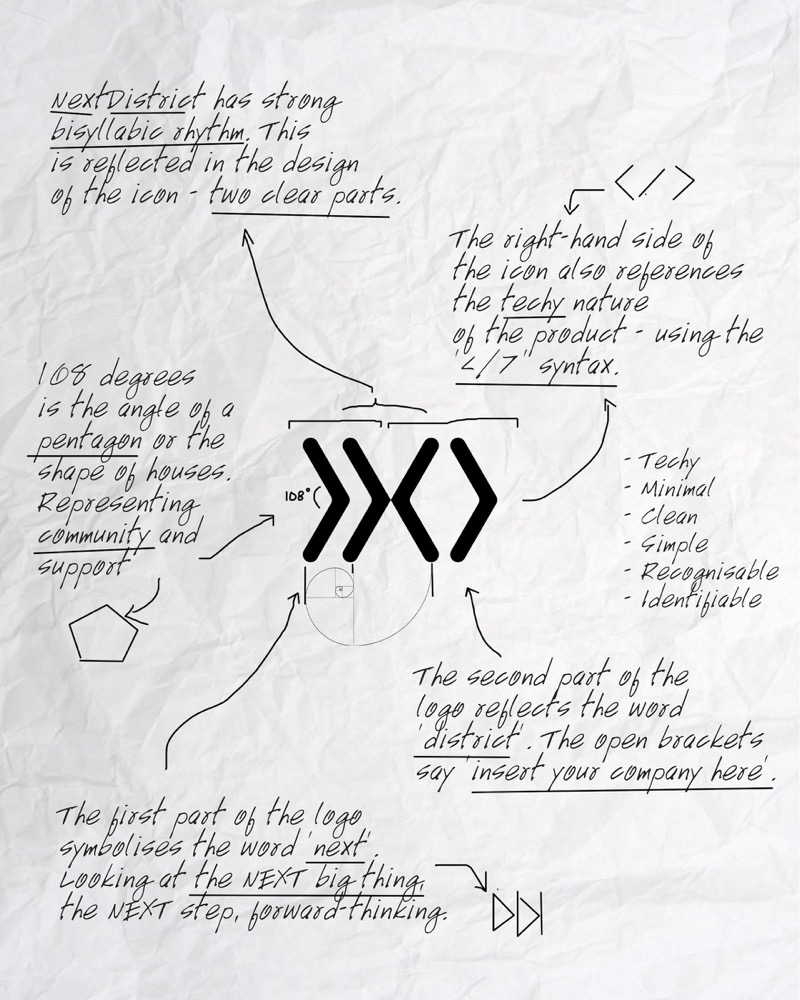 NextDistrict has strong
bisyllabic rhythm. This
is reflected in the design
of the icon - two clear parts.
</>
The right-hand side of
the icon also references
the techy nature
of the product - using the
'</>' syntax.
108 degrees
is the angle of a
pentagon or the
shape of houses.
Representing
community and
support
108°
- Techy
- Minimal
- Clean
- Simple
- Recognisable
- Identifiable
The second part of the
logo reflects the word
'district'. The open brackets
say 'insert your company here'.
The first part of the logo
symbolises the word 'next'.
Looking at the NEXT big thing,
the NEXT step, forward-thinking.